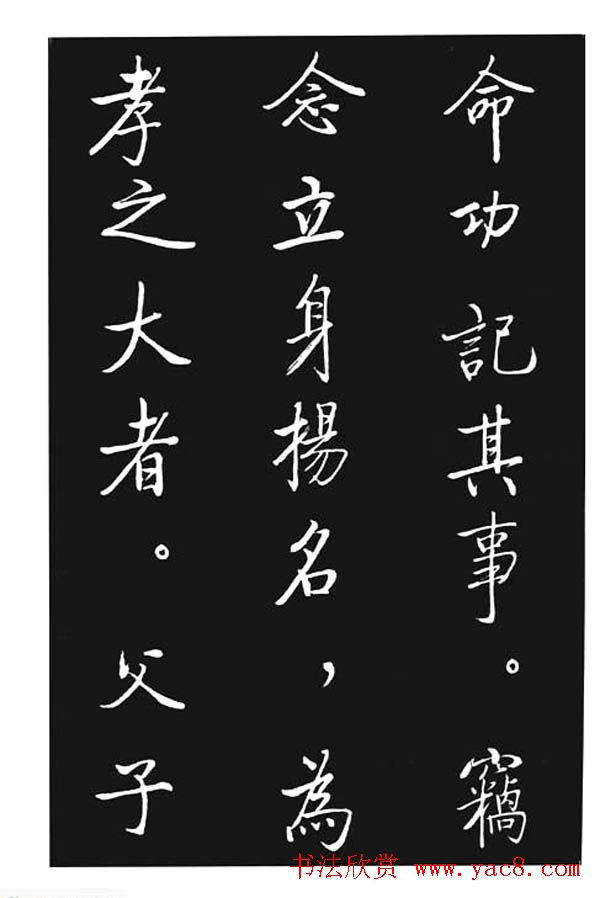 命功記其事。竊
念立身揚名，為
孝之大者。父子
书法欣赏 www.yac8.com